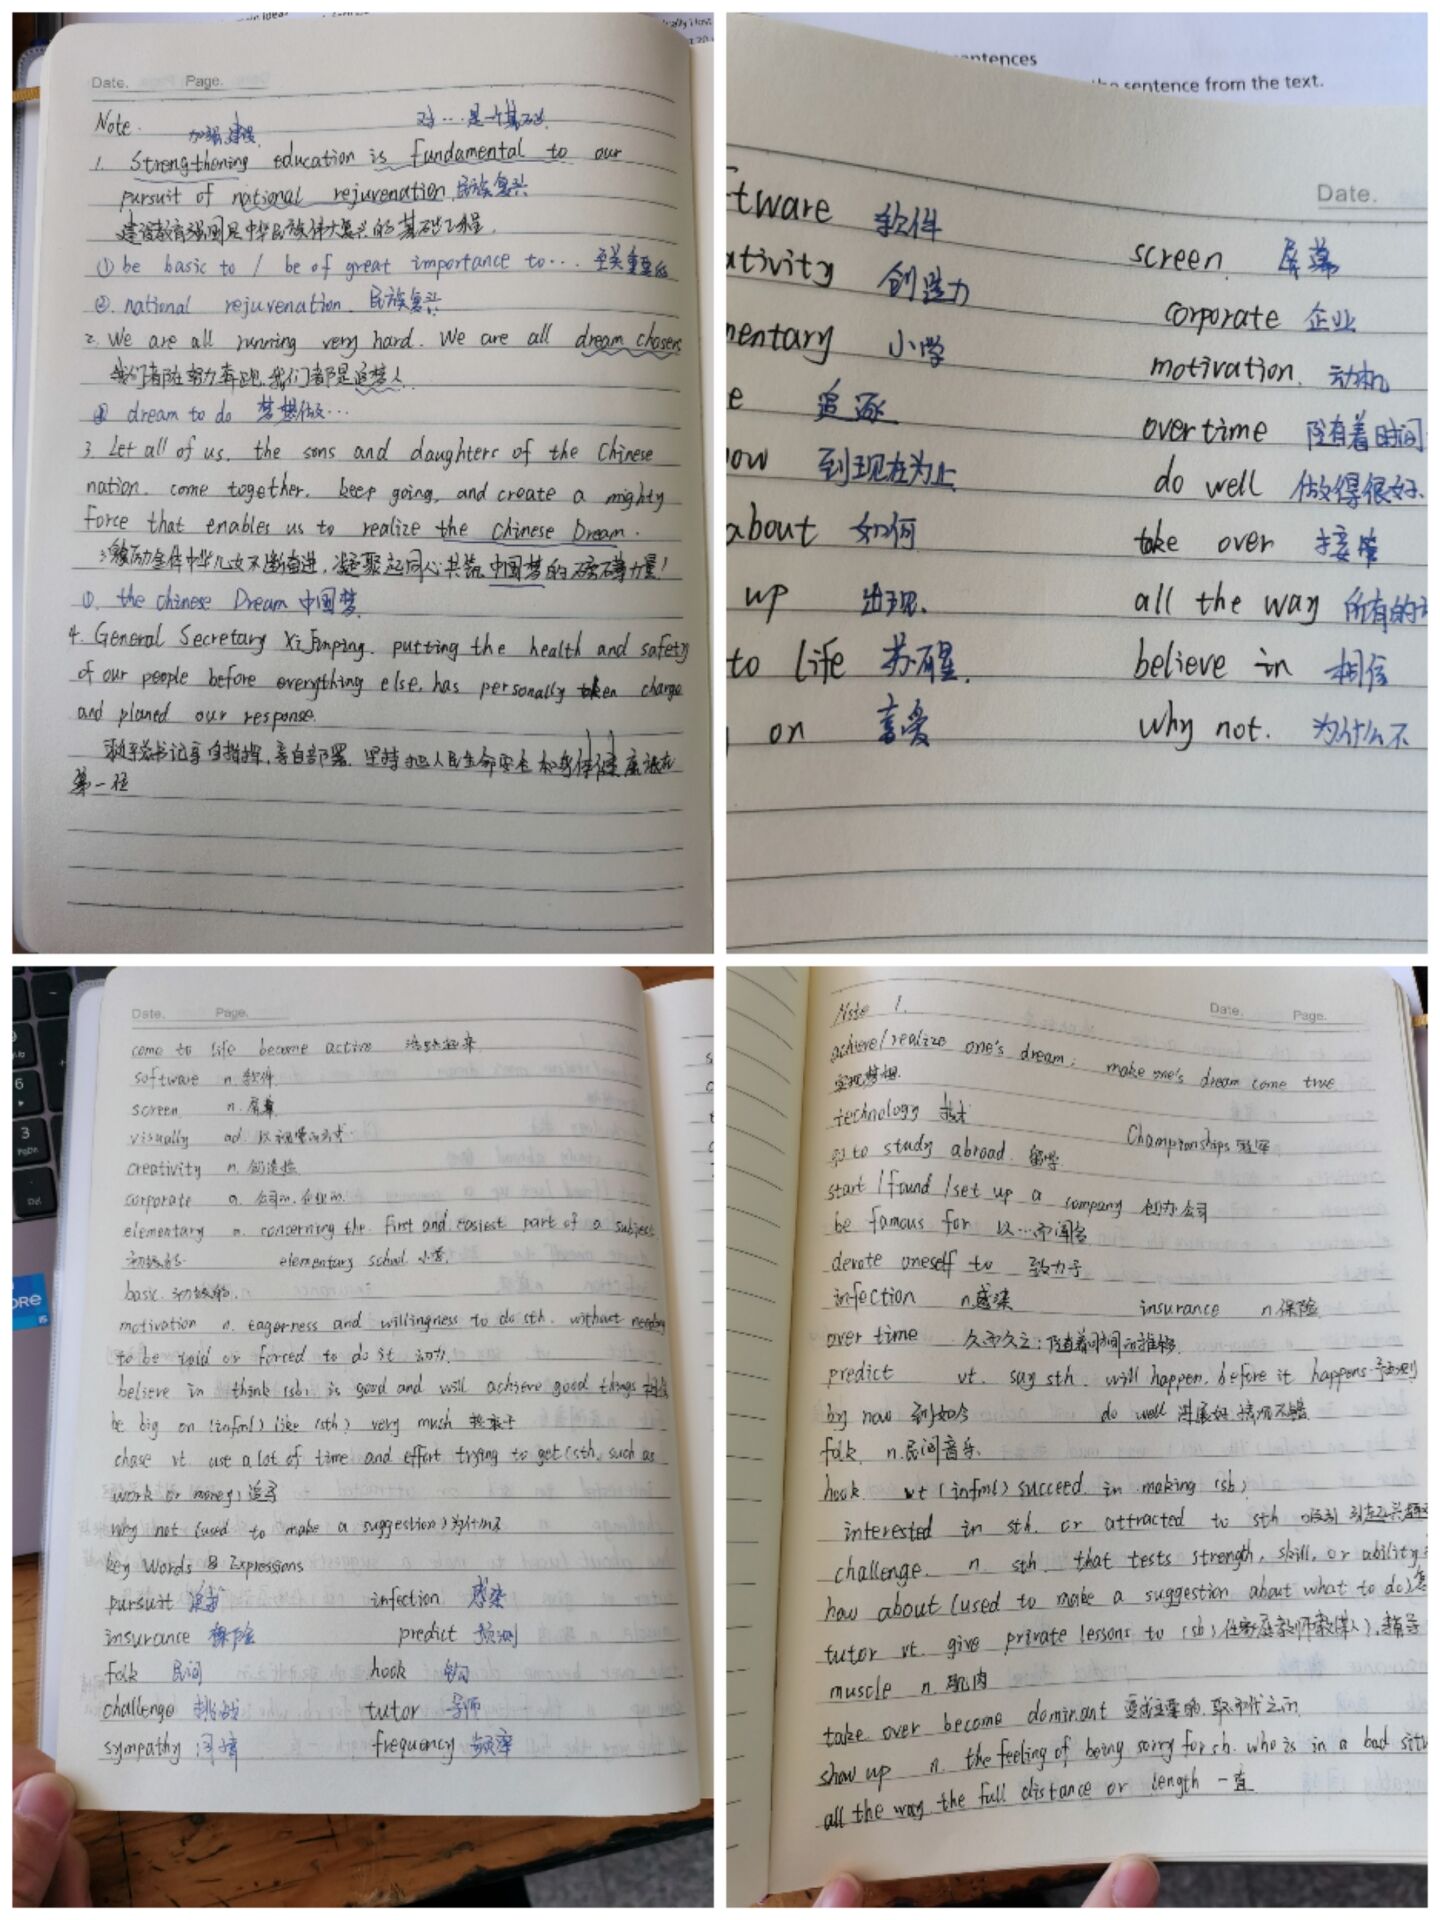 Date. Page.
Note.
加强建设 对…是一个基础
1. Strengthening education is fundamental to our
pursuit of national rejuvenation. 民族复兴
建设教育强国是中华民族伟大复兴的基础工程.
① be basic to / be of great importance to… 至关重要的
②. national rejuvenation. 民族复兴
2. We are all running very hard. We are all dream chasers
我们都在努力奔跑,我们都是追梦人.
dream to do 梦想做…
3. Let all of us. the sons and daughters of the Chinese
nation. come together. keep going, and create a mighty
force that enables us to realize the Chinese Dream.
激励全体中华儿女不断奋进,凝聚起同心共筑中国梦的磅礴力量!
①. the Chinese Dream 中国梦.
4. General Secretary Xi Jinping. putting the health and safety
of our people before everything else, has personally taken charge
and planed our response.
总书记亲自指挥,亲自部署.坚持把人民生命安全和身体健康放在
第一位
entences
the sentence from the text.
Date.
ftware 软件
ativity 创造力
mentary 小学
e 追逐
now 到现在为止
about 如何
up 出现.
to life 苏醒.
on 喜爱
screen. 屏幕
corporate 企业
motivation. 动机
over time 随着时间
do well 做得很好.
take over 接管
all the way 所有的
believe in 相信
why not. 为什么不
Date. Page.
come to life become active 活跃起来
software n. 软件
screen n. 屏幕
visually ad. 以视觉的方式
creativity n. 创造性
corporate a. 公司的.企业的
elementary a. concerning the first and easiest part of a subject
初级的 elementary school 小学.
basic. 初级的.
motivation n. eagerness and willingness to do sth. without needing
to be told or forced to do it 动力.
believe in think (sb) is good and will achieve good things 相信
be big on (infml) like (sth) very much 热衷于
chase vt. use a lot of time and effort trying to get (sth, such as
work or money) 追求
why not (used to make a suggestion) 为什么不
key Words & Expressions
pursuit 追求 infection 感染
insurance 保险 predict 预测
folk 民间 hook 钩
challenge 挑战 tutor 导师
sympathy 同情 frequency 频率
Note 1. Date. Page.
achieve/realize one's dream; make one's dream come true
实现梦想.
technology 技术
go to study abroad. 留学 Championships 冠军
start / found / set up a company 创办公司
be famous for 以…而闻名
devote oneself to 致力于
infection n.感染 insurance n.保险
over time 久而久之;随着时间的推移.
predict vt. say sth. will happen. before it happens 预测
by now 到如今 do well 进展好 情况不错
folk n.民间音乐.
hook. vt (infml) succeed in making (sb)
interested in sth. or attracted to sth 吸引 引起兴趣
challenge. n. sth. that tests strength, skill, or ability
how about (used to make a suggestion about what to do)
tutor vt. give private lessons to (sb) (任家庭教师教某人),辅导
muscle n. 肌肉
take over become dominant 变成主要的.取而代之
show up n. the feeling of being sorry for sb. who is in a bad situ
all the way the full distance or length 一直